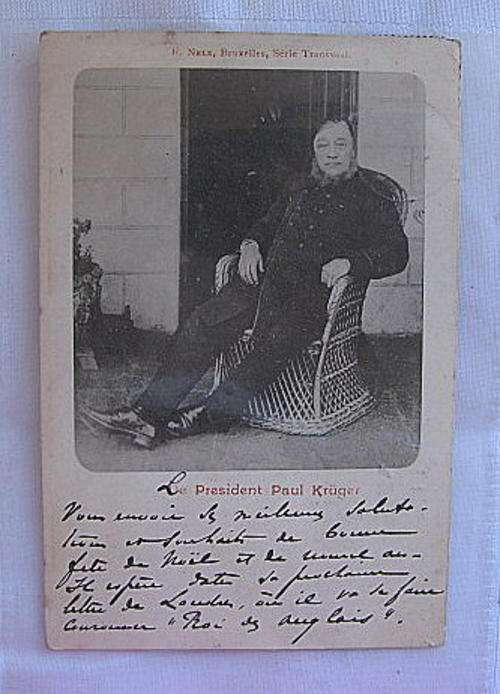 E. Nels, Bruxelles, Série Transvaal.
Le President Paul Krüger
Vous envoie ses meilleures saluta-
tions et souhaits de bonne
fête de Noël et de nouvel an.-
Il espère dater sa prochaine
lettre de Londres, où il va se faire
couronner "Roi des Anglais".